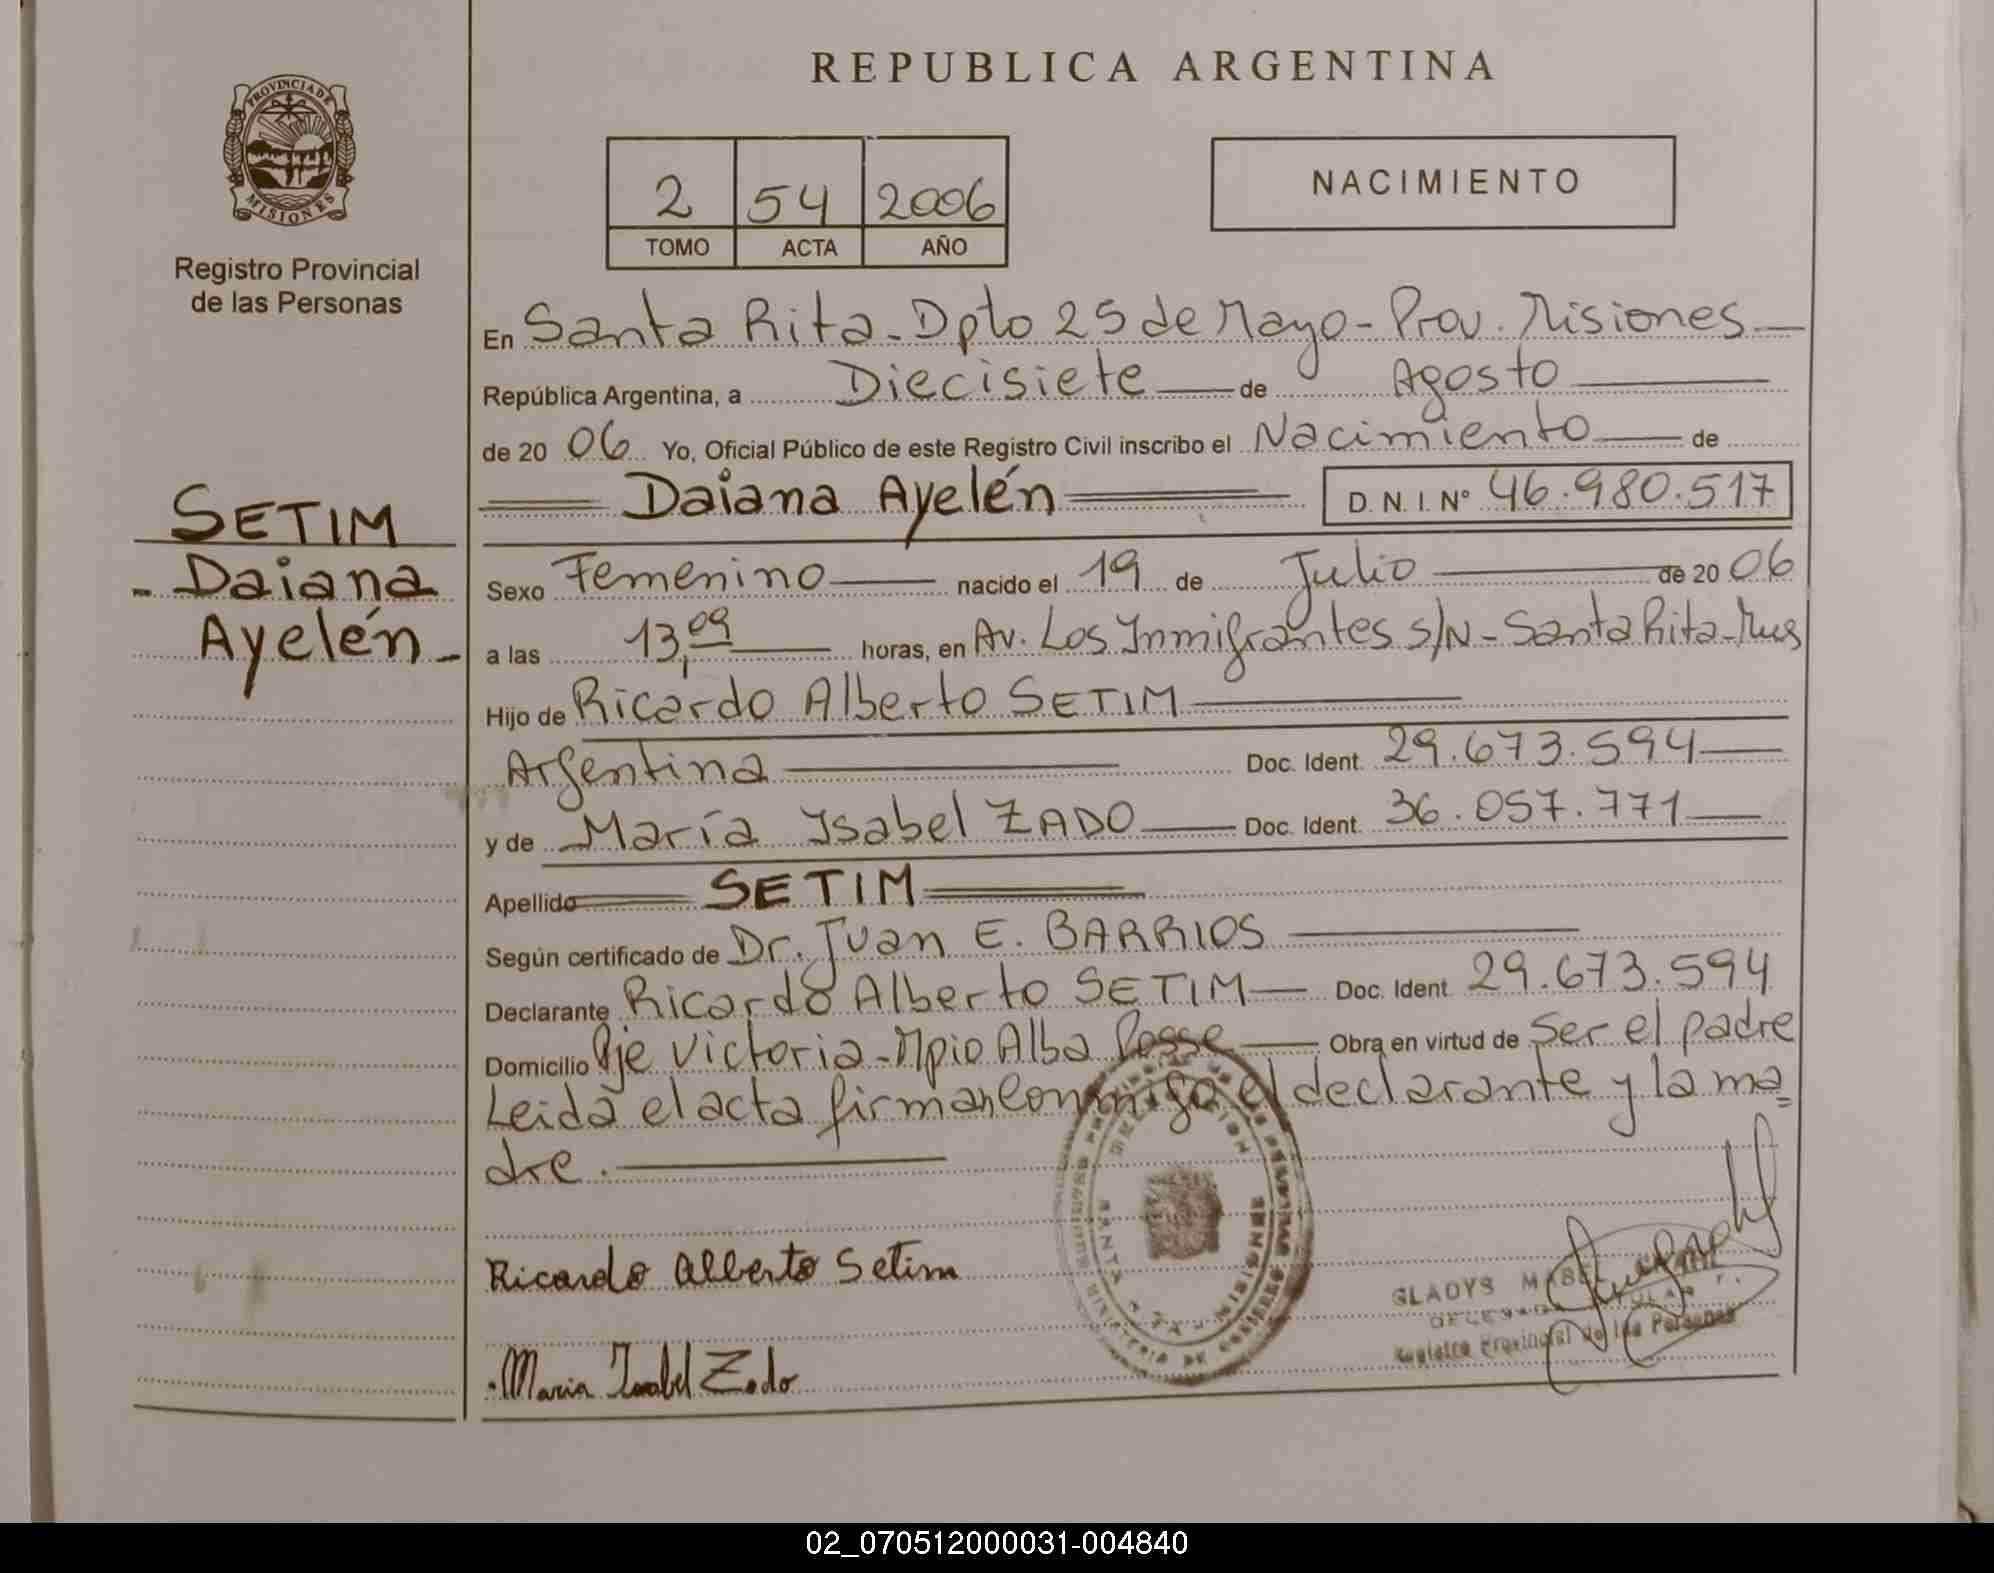 REPUBLICA ARGENTINA
PROVINCIA DE
MISIONES
Registro Provincial
de las Personas
2 54 2006
TOMO ACTA AÑO
NACIMIENTO
En Santa Rita - Dpto 25 de Mayo - Prov. Misiones
República Argentina, a Diecisiete de Agosto
de 20 06 Yo, Oficial Público de este Registro Civil inscribo el Nacimiento de
Daiana Ayelén D.N.I. Nº 46.980.517
SETIM
Daiana
Ayelén
Sexo Femenino nacido el 19 de Julio de 20 06
a las 13,09 horas, en Av. Los Inmigrantes s/N - Santa Rita - Mnes
Hijo de Ricardo Alberto SETIM
Argentina Doc. Ident. 29.673.594
y de María Isabel ZADO Doc. Ident. 36.057.771
Apellido SETIM
Según certificado de Dr. Juan E. BARRIOS
Declarante Ricardo Alberto SETIM Doc. Ident. 29.673.594
Domicilio Pje Victoria - Mpio Alba Posse Obra en virtud de Ser el padre
Leida el acta firman conmigo el declarante y la ma=
dre.
Ricardo Alberto Setim
Maria Isabel Zado
GLADYS
Registro Provincial de las Personas
SANTA RITA
MINISTERIO DE GOBIERNO
02_070512000031-004840